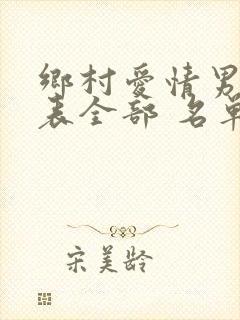 鄉村愛情男
表全部 名單
宋美龄